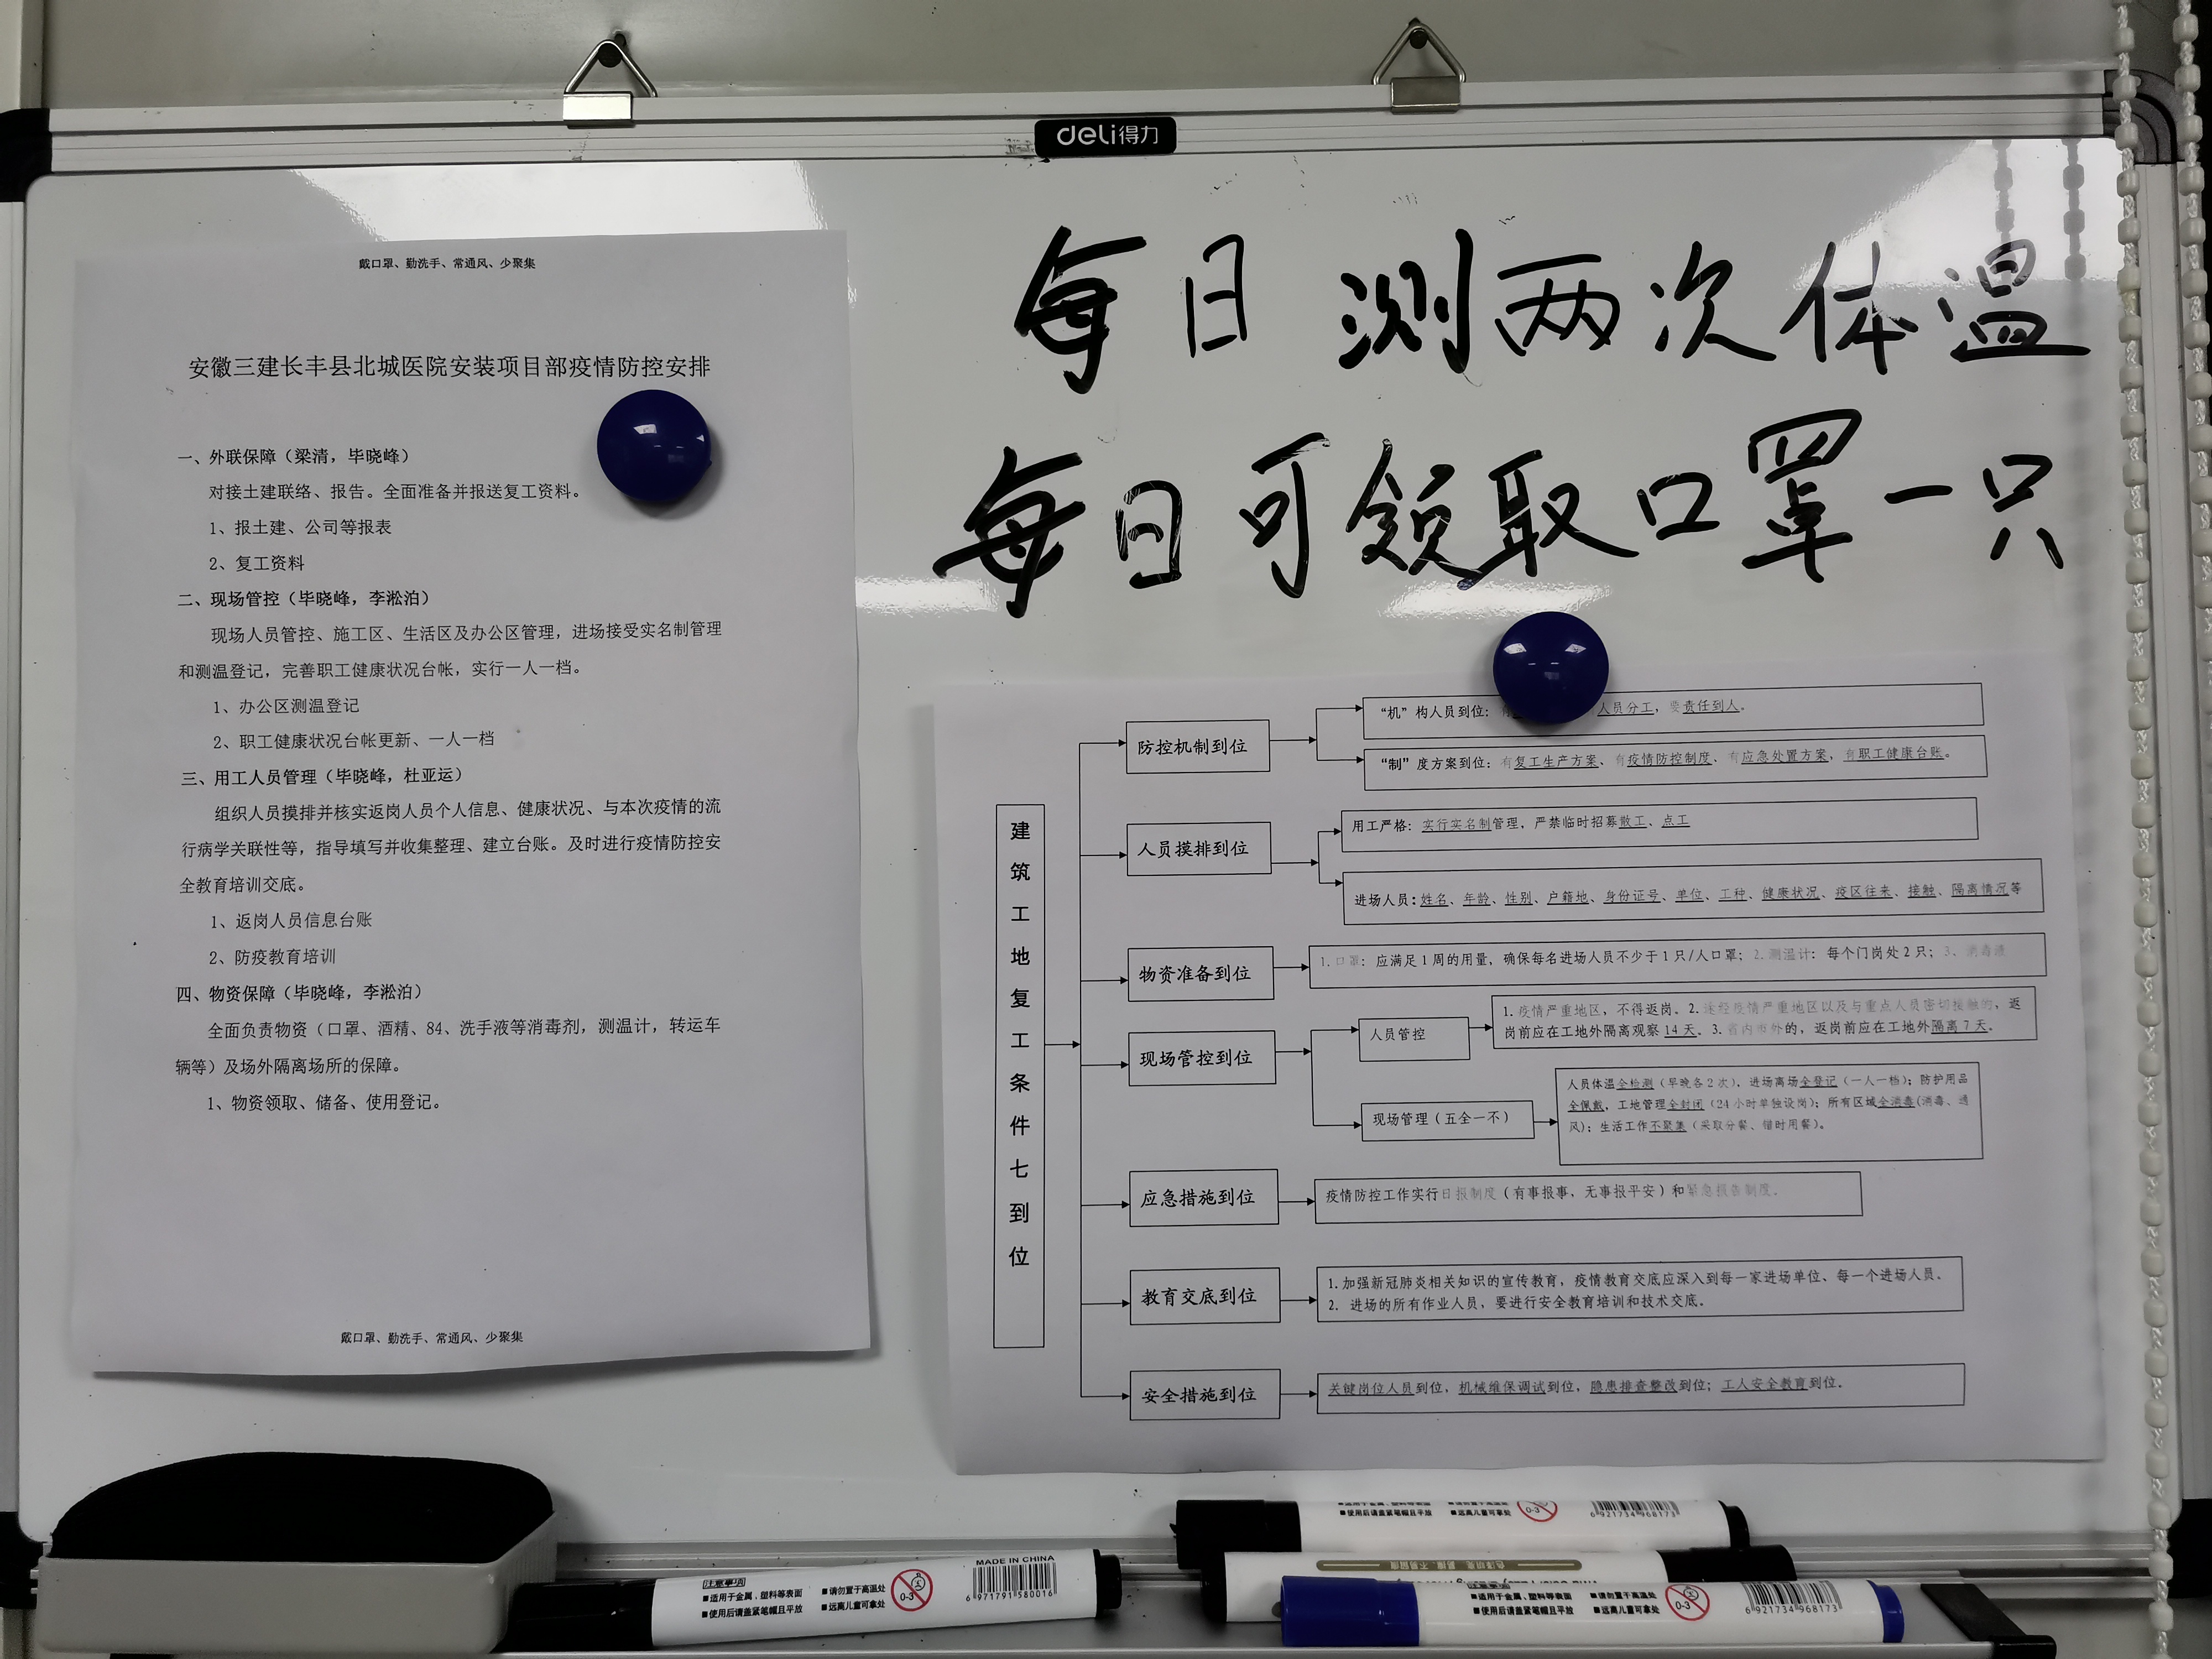 deli得力
每日测两次体温
每日可领取口罩一只
戴口罩、勤洗手、常通风、少聚集
安徽三建长丰县北城医院安装项目部疫情防控安排
一、外联保障（梁清，毕晓峰）
对接土建联络、报告。全面准备并报送复工资料。
1、报土建、公司等报表
2、复工资料
二、现场管控（毕晓峰，李淞泊）
现场人员管控、施工区、生活区及办公区管理，进场接受实名制管理
和测温登记，完善职工健康状况台帐，实行一人一档。
1、办公区测温登记
2、职工健康状况台帐更新、一人一档
三、用工人员管理（毕晓峰，杜亚运）
组织人员摸排并核实返岗人员个人信息、健康状况、与本次疫情的流
行病学关联性等，指导填写并收集整理、建立台账。及时进行疫情防控安
全教育培训交底。
1、返岗人员信息台账
2、防疫教育培训
四、物资保障（毕晓峰，李淞泊）
全面负责物资（口罩、酒精、84、洗手液等消毒剂，测温计，转运车
辆等）及场外隔离场所的保障。
1、物资领取、储备、使用登记。
戴口罩、勤洗手、常通风、少聚集
建筑工地复工条件七到位
防控机制到位
“机”构人员到位： 人员分工，要责任到人。
“制”度方案到位：有复工生产方案、有疫情防控制度、有应急处置方案，有职工健康台账。
人员摸排到位
用工严格：实行实名制管理，严禁临时招募散工、点工
进场人员：姓名、年龄、性别、户籍地、身份证号、单位、工种、健康状况、疫区往来、接触、隔离情况等
物资准备到位
1.口罩：应满足1周的用量，确保每名进场人员不少于1只/人口罩；2.测温计：每个门岗处2只；3、消毒液
现场管控到位
人员管控
1.疫情严重地区，不得返岗。2.途经疫情严重地区以及与重点人员密切接触的，返
岗前应在工地外隔离观察14天。3.省内市外的，返岗前应在工地外隔离7天。
现场管理（五全一不）
人员体温全检测（早晚各2次），进场离场全登记（一人一档）；防护用品
全佩戴，工地管理全封闭（24小时单独设岗）；所有区域全消毒(消毒、通
风)；生活工作不聚集（采取分餐、错时用餐）。
应急措施到位
疫情防控工作实行日报制度（有事报事，无事报平安）和紧急报告制度。
教育交底到位
1.加强新冠肺炎相关知识的宣传教育，疫情教育交底应深入到每一家进场单位、每一个进场人员。
2. 进场的所有作业人员，要进行安全教育培训和技术交底。
安全措施到位
关键岗位人员到位，机械维保调试到位，隐患排查整改到位；工人安全教育到位。
■使用后请盖紧笔帽且平放 ■远离儿童可拿处
0-3
6 921734 968173
注意事项
■适用于金属，塑料等表面 ■请勿置于高温处
■使用后请盖紧笔帽且平放 ■远离儿童可拿处
0-3
MADE IN CHINA
6 971791 580016
注意事项
■适用于金属，塑料等表面 ■请勿置于高温处
■使用后请盖紧笔帽且平放 ■远离儿童可拿处
0-3
6 921734 968173